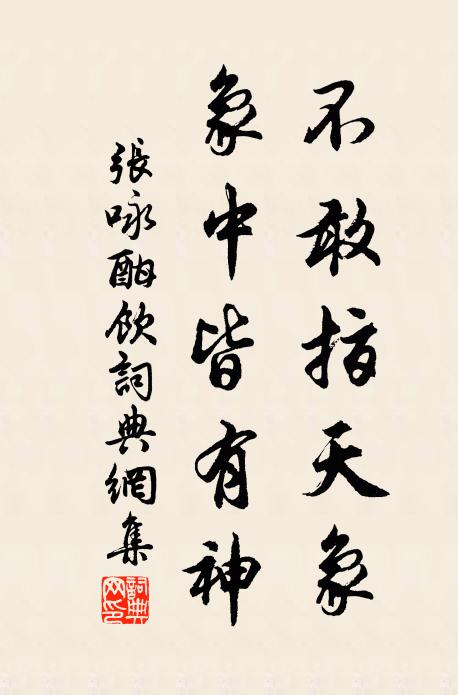 不敢指天象
象中皆有神
張咏酣飲詞典網集
詞典
网印